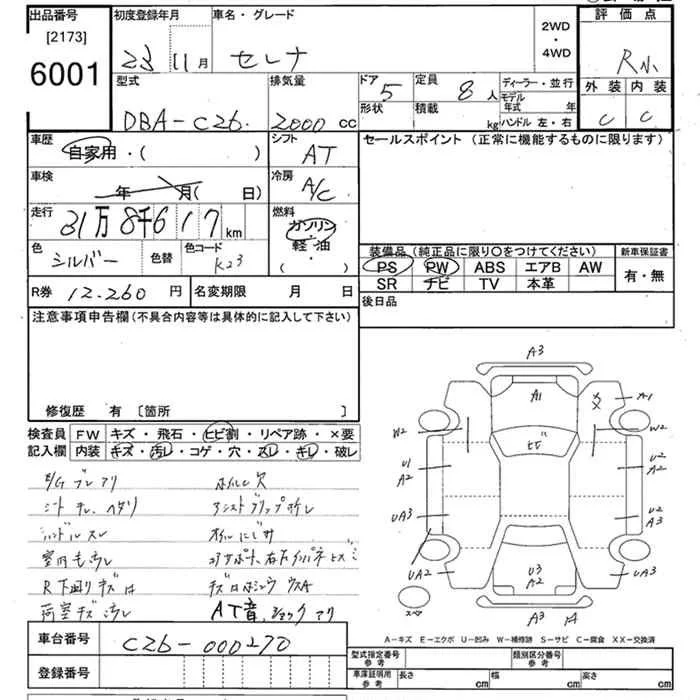 出品番号 初度登録年月 車名・グレード 評価点
[2173] 23 11月 セレナ 2WD・4WD R小
6001
型式 排気量 ドア 5 定員 8人 ディーラー・並行 外装 内装
DBA-C26. 2000cc 形状 積載 kg モデル年式 年 C C
ハンドル 左・右
車歴 自家用・( ) シフト AT セールスポイント (正常に機能するものに限ります)
車検 年 月( 日) 冷房 A/C
走行 31万8千617km 燃料 ガソリン・軽・油 ( )
色 シルバー 色替 色コード K23
装備品 (純正品に限り〇をつけてください) 新車保証書
PS PW ABS エアB AW 有・無
SR ナビ TV 本革
R券 12.260円 名変期限 月 日 後日品
注意事項申告欄(不具合内容等は具体的に記入して下さい)
修復歴 有 [箇所 ]
検査員 FW キズ・飛石・ヒビ割・リペア跡・×要
記入欄 内装 キズ・汚レ・コゲ・穴・スレ・キレ・破レ
シート ヘタリ
ハンドル スレ
室内 汚レ
R下回り キズ
荷室キズ汚レ AT音.ショック アリ
A3
A1 A1
W2 W2
ヒビ
U1 A2 U2 A2
UA3 U2 A3
UA2 UA3
U3 A2
スペア A3 A
A-キズ E-エクボ U-凹み W-補修跡 S-サビ C-腐食 XX-交換済
車台番号 C26-000270 型式指定番号 参考 類別区分番号 参考
登録番号 車庫証明用 参考 長さ cm 幅 cm 高さ cm